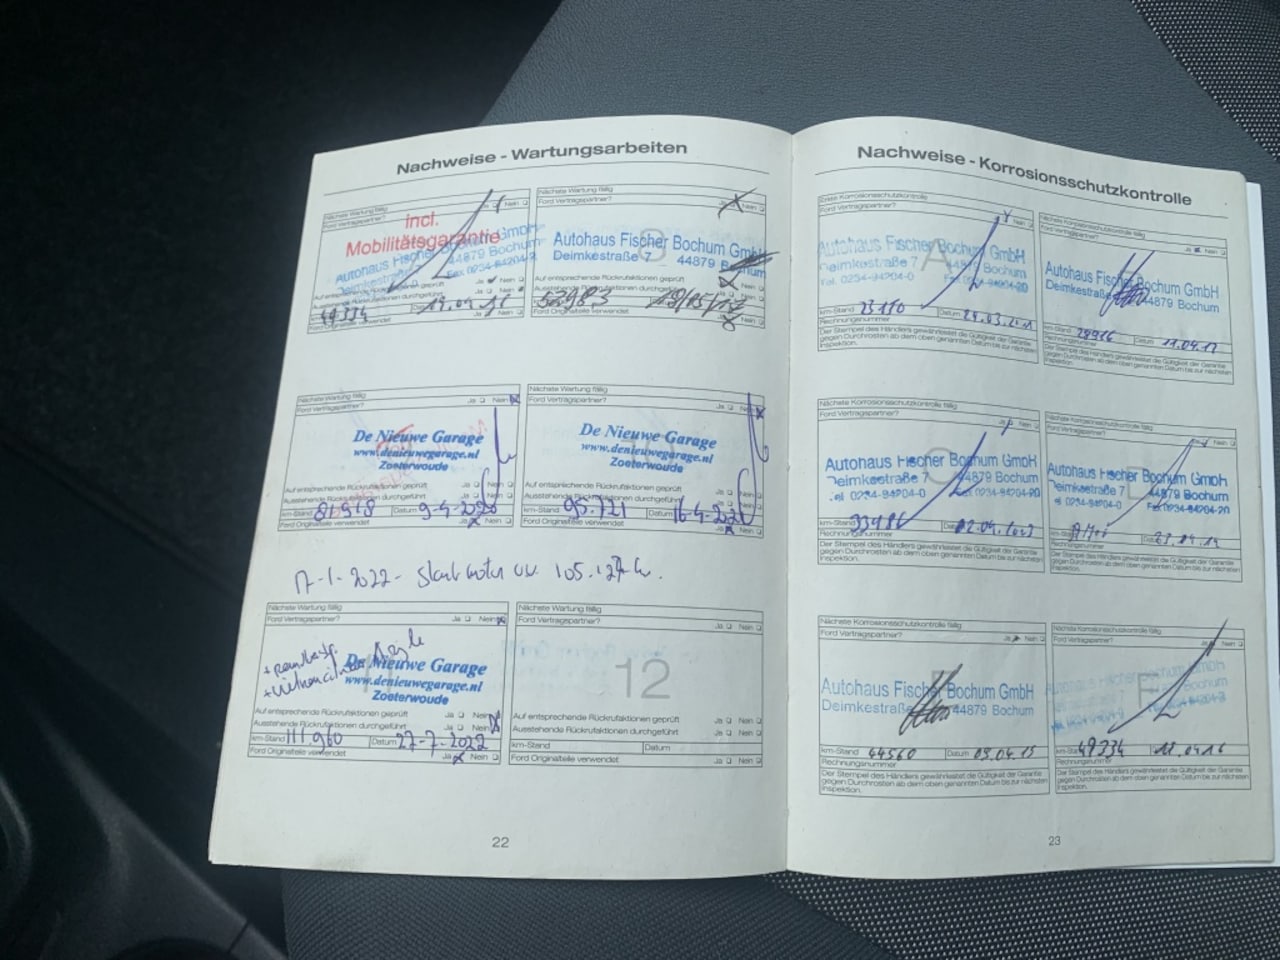 Nachweise - Wartungsarbeiten
Nächste Wartung fällig
Ford Vertragspartner? Ja Nein
incl.
Mobilitätsgarantie
Autohaus Fischer GmbH
Deimkestraße 44879 Bochum
Fax 0234-94204-2
Auf entsprechende Rückrufaktionen geprüft Ja Nein
Ausstehende Rückrufaktionen durchgeführt Ja Nein
49334 Datum
Ford Originalteile verwendet Ja Nein
Nächste Wartung fällig
Ford Vertragspartner? Ja Nein
Autohaus Fischer Bochum GmbH
Deimkestraße 7 44879 Bochum
Auf entsprechende Rückrufaktionen geprüft
Ausstehende Rückrufaktionen durchgeführt
52983
Ford Originalteile verwendet Ja Nein
Nächste Wartung fällig
Ford Vertragspartner? Ja Nein
De Nieuwe Garage
www.denieuwegarage.nl
Zoeterwoude
Auf entsprechende Rückrufaktionen geprüft Ja Nein
Ausstehende Rückrufaktionen durchgeführt Ja Nein
km-Stand Datum 9-4-2020
Ford Originalteile verwendet Ja Nein
Nächste Wartung fällig
Ford Vertragspartner? Ja Nein
De Nieuwe Garage
www.denieuwegarage.nl
Zoeterwoude
Auf entsprechende Rückrufaktionen geprüft Ja Nein
Ausstehende Rückrufaktionen durchgeführt Ja Nein
km-Stand 95.721 Datum
Ford Originalteile verwendet Ja Nein
17-1-2022-
Nächste Wartung fällig
Ford Vertragspartner? Ja Nein
De Nieuwe Garage
www.denieuwegarage.nl
Zoeterwoude
Auf entsprechende Rückrufaktionen geprüft Ja Nein
Ausstehende Rückrufaktionen durchgeführt Ja Nein
km-Stand 111.960 Datum 27-7-2022
Ford Originalteile verwendet Ja Nein
Nächste Wartung fällig
Ford Vertragspartner? Ja Nein
12
Auf entsprechende Rückrufaktionen geprüft Ja Nein
Ausstehende Rückrufaktionen durchgeführt Ja Nein
km-Stand Datum
Ford Originalteile verwendet Ja Nein
22
Nachweise - Korrosionsschutzkontrolle
Erste Korrosionsschutzkontrolle
Ford Vertragspartner? Nein
A
Autohaus Fischer Bochum GmbH
Deimkestraße 7 44879 Bochum
Tel. 0234-94204-0
km-Stand 23110 Datum
Rechnungsnummer
Der Stempel des Händlers gewährleistet die Gültigkeit der Garantie
gegen Durchrosten ab dem oben genannten Datum bis zur nächsten
Inspektion.
Nächste Korrosionsschutzkontrolle fällig
Ford Vertragspartner? Ja Nein
Autohaus Fischer Bochum GmbH
Deimkestraße 44879 Bochum
km-Stand 28916 Datum 11.04.12
Rechnungsnummer
Der Stempel des Händlers gewährleistet die Gültigkeit der Garantie
gegen Durchrosten ab dem oben genannten Datum bis zur nächsten
Inspektion.
Nächste Korrosionsschutzkontrolle fällig
Ford Vertragspartner? Nein
C
Autohaus Fischer Bochum GmbH
Deimkestraße 7 44879 Bochum
Tel 0234-94204-0 Fax 0234-94204-20
km-Stand
Rechnungsnummer
Der Stempel des Händlers gewährleistet die Gültigkeit der Garantie
gegen Durchrosten ab dem oben genannten Datum bis zur nächsten
Inspektion.
Nächste Korrosionsschutzkontrolle fällig
Ford Vertragspartner? Nein
Autohaus Fischer Bochum GmbH
Deimkestraße 7 44879 Bochum
Tel 0234-94204-0 Fax 0234-94204-20
km-Stand
Rechnungsnummer
Der Stempel des Händlers gewährleistet die Gültigkeit der Garantie
gegen Durchrosten ab dem oben genannten Datum bis zur nächsten
Inspektion.
Nächste Korrosionsschutzkontrolle fällig
Ford Vertragspartner? Ja Nein
Autohaus Fischer Bochum GmbH
Deimkestraße 44879 Bochum
km-Stand 44560 Datum 09.04.15
Rechnungsnummer
Der Stempel des Händlers gewährleistet die Gültigkeit der Garantie
gegen Durchrosten ab dem oben genannten Datum bis zur nächsten
Inspektion.
Nächste Korrosionsschutzkontrolle fällig
Ford Vertragspartner? Nein
F
km-Stand 49334
Rechnungsnummer
Der Stempel des Händlers gewährleistet die Gültigkeit der Garantie
gegen Durchrosten ab dem oben genannten Datum bis zur nächsten
Inspektion.
23